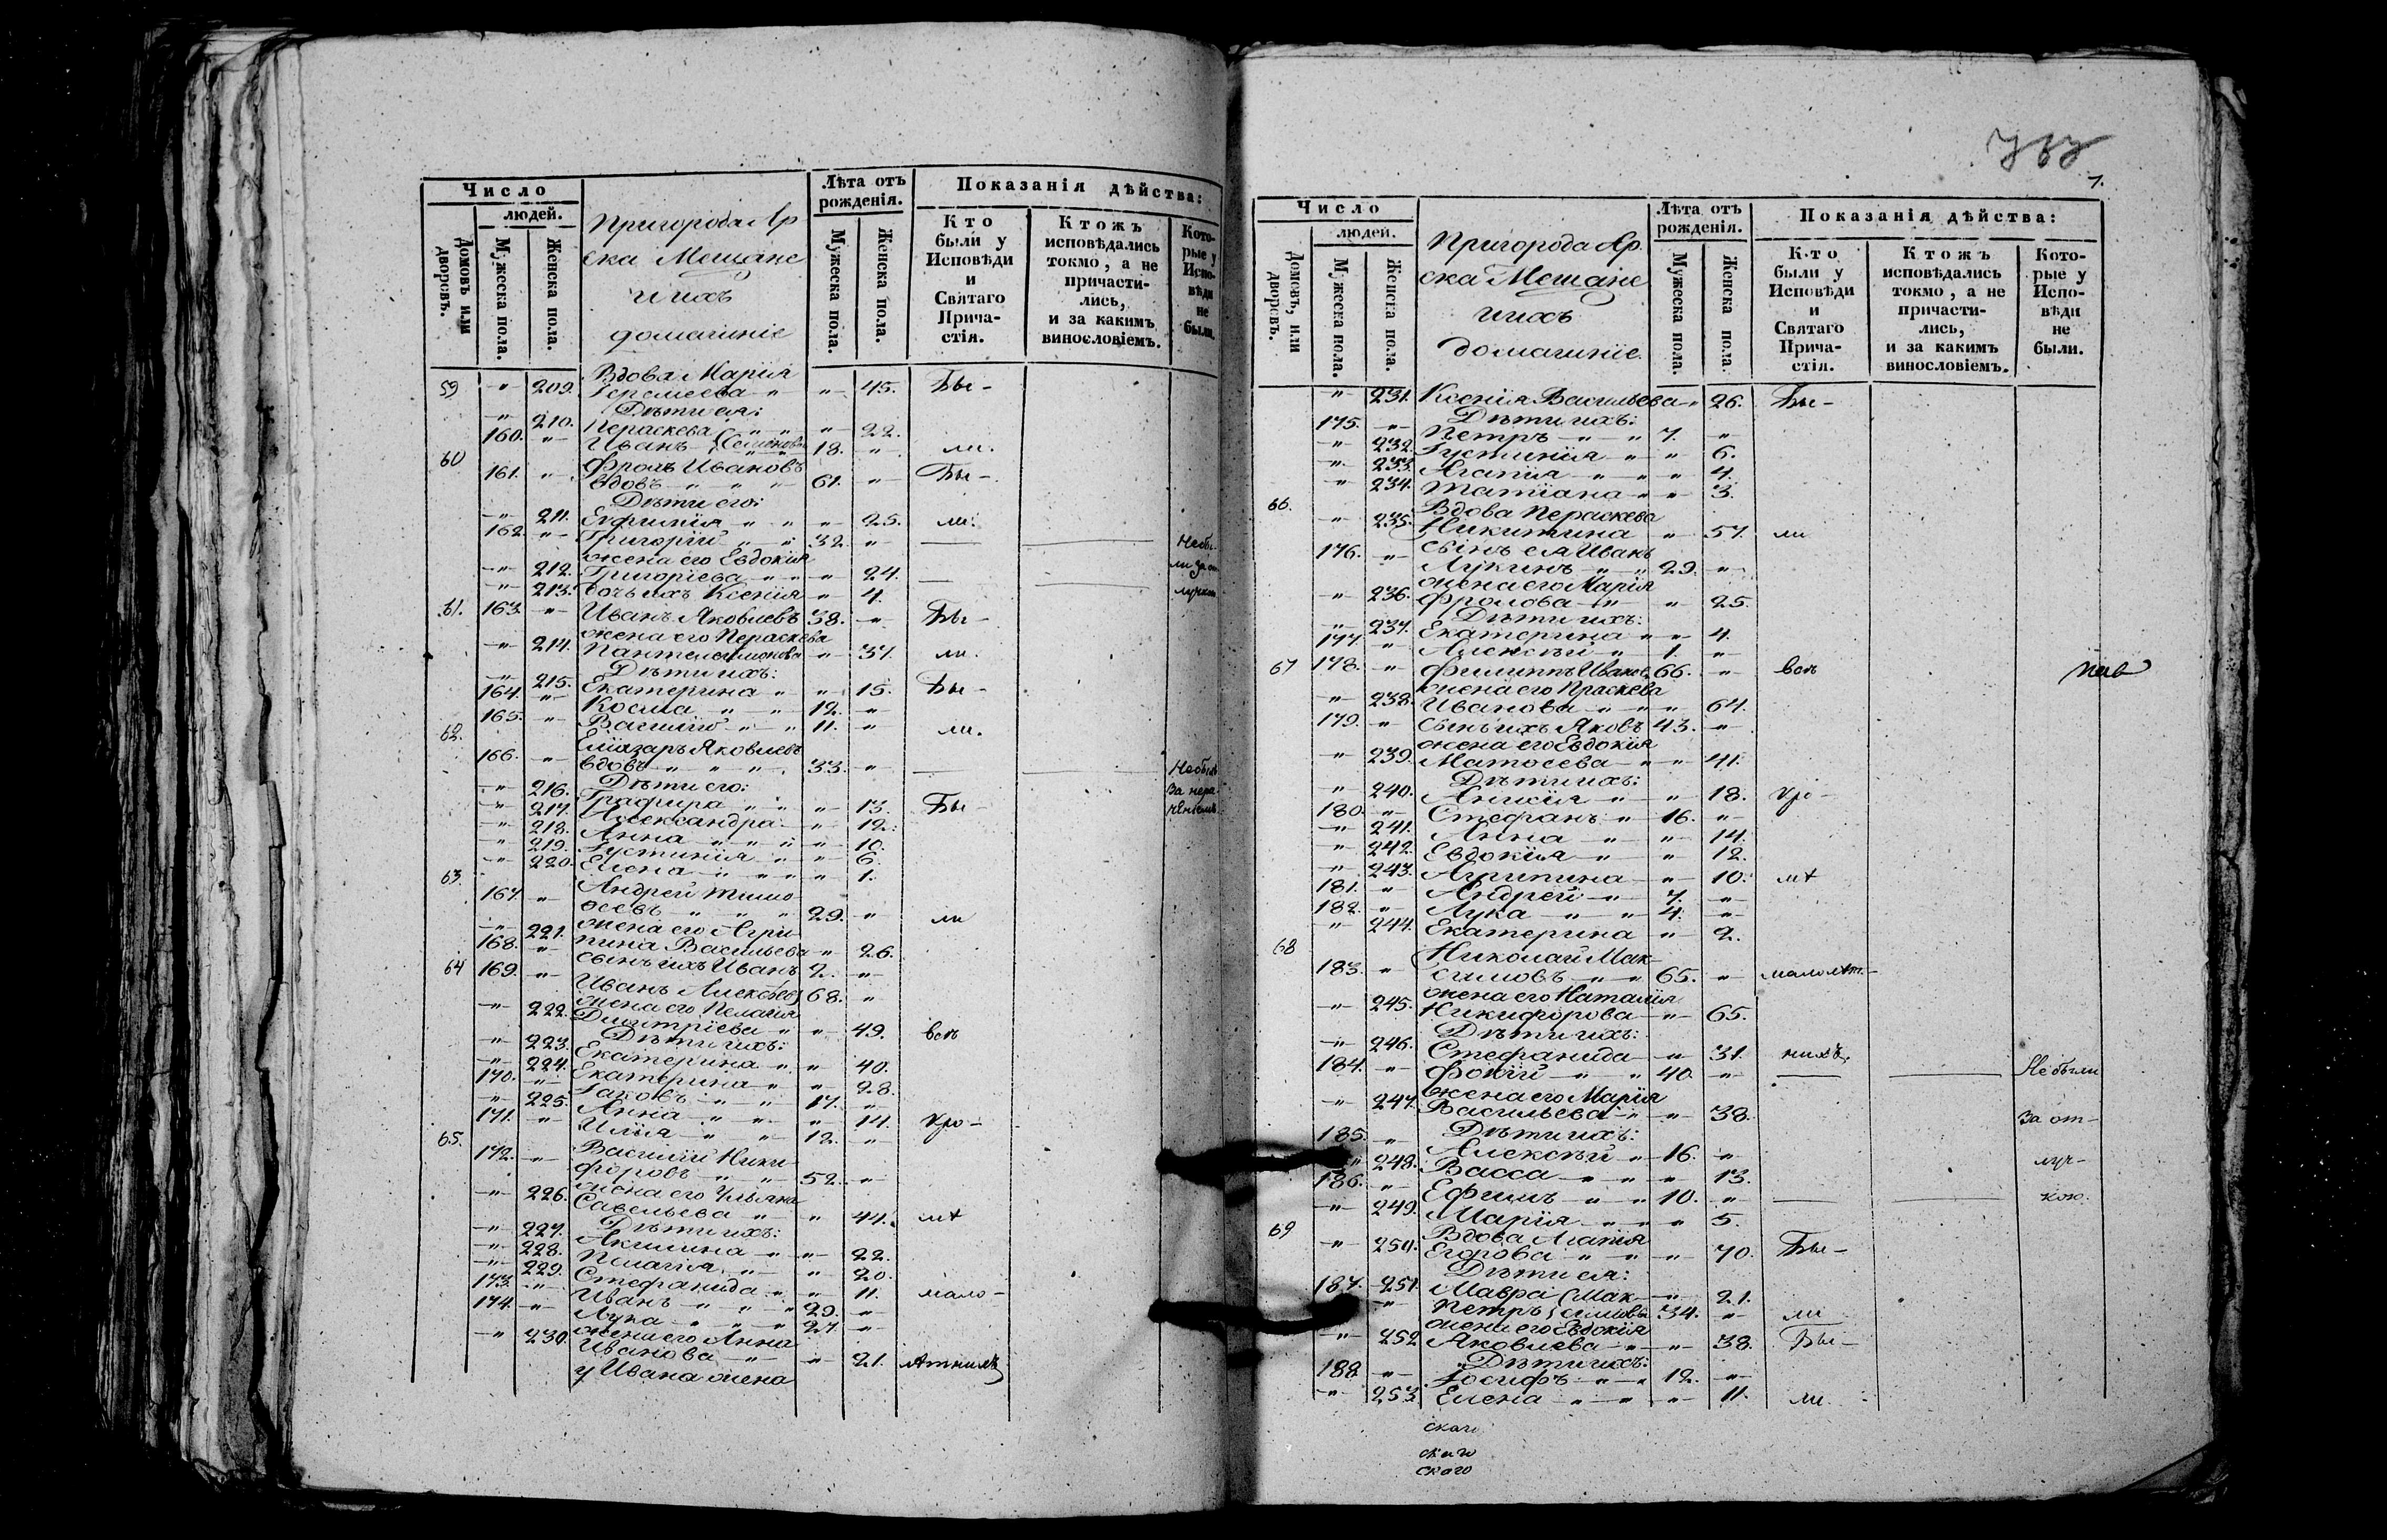 Число
людей.
Домовъ или дворовъ.
Мужеска пола.
Женска пола.
Пригорода Ар
ска Мещане
и ихъ
домашніе
Лѣта отъ рожденія.
Мужеска пола.
Женска пола.
Показанія дѣйства:
Кто были у Исповѣди и Святаго Прича- стія.
Ктожъ исповѣдались токмо, а не причасти- лись, и за какимъ винословіемъ.
Кото- рые у Испо- вѣди не были.
Вдова Марія
59 " 209. Еремеева " " 45. Бы-
Дѣти ея:
" 210. Параскева " " " 22.
160. " Иванъ Семеновы 18. " ли.
60 Фролъ Ивановъ
161. " вдовъ " " " 61. " Бы-
Дѣти его:
" 211. Евфимія " " " 25. ли.
162. " Григорій " " 32. " Небы-
жена его Евдокія
" 212. Григоріева " " " 24. ли за от
" 213. дочь ихъ Ксенія " 4. лучкою
61. 163. " Иванъ Яковлевъ 38. " Бы-
жена его Параскева
" 214. Пантелеимонова " 37. ли.
Дѣти ихъ:
" 215. Екатерина " " 15. Бы-
164. " Косма " " 12. "
165. " Василій " " 11. " ли.
62. Еліазаръ Яковлевъ
166. " вдовъ " " " 33. " Небылъ
Дѣти его: за нера
" 216. Графира " " " 13. Бы- чѣніемъ
" 217. Александра " " 12.
" 218. Анна " " " " 10.
" 219. Густинія " " 6.
" 220. Елена " " " " 1.
63. Андрей Тимо
167. " ѳеевъ " " " 29. " ли
жена его Агри
" 221. пина Васильева " 26.
168. " сынъ ихъ Иванъ 2. "
64 169. " Иванъ Алексѣевъ 68. "
жена его Пелагія
" 222. Дмитріева " " 49. всѣ
Дѣти ихъ:
" 223. Екатерина " " 40.
" 224. Екатерина " " 28.
170. " Іаковъ " " 17. "
" 225. Анна " " " 14. Уро-
171. " Илія " " 12. "
65. Василій Ники
172. " форовъ " " 52. "
жена его Ульяна
" 226. Савельева " " 44. лѣ
Дѣти ихъ:
" 227. Акилина " " 22.
" 228. Пелагія " " 20.
" 229. Стефанида " " 11. мало-
173. " Иванъ " " " 29. "
174. " Лука " " " 27. "
жена его Анна
" 230. Иванова " " 21. лѣтнихъ
у Ивана жена
1.
Число
людей.
Домовъ, или дворовъ.
Мужеска пола.
Женска пола.
Пригорода Ар.
ска Мещане
и ихъ
домашніе.
Лѣта отъ рожденія.
Мужеска пола.
Женска пола
Показанія дѣйства:
Кто были у Исповѣди и Святаго Прича- стія.
Ктожъ исповѣдались токмо, а не причасти- лись, и за какимъ винословіемъ.
Кото- рые у Испо- вѣди не были.
" 231. Ксенія Васильева " 26. Бы-
Дѣти ихъ:
175. " Петръ " " 7. "
" 232. Густинія " " 6.
" 233. Агапія " " " 4.
" 234. Татіана " " 3.
66. Вдова Параскева
" 235. Никитина " 57. ли
сынъ ея Иванъ
176. " Лукинъ " " 29. "
жена его Марія
" 236. Фролова " " 25.
Дѣти ихъ:
" 237. Екатерина " " 4.
177. " Алексѣй " 1. "
67 178. " Филиппъ Иванов. 66. " всѣ
жена его Праскева
" 238. Иванова " " " 64.
179. " сынъ ихъ Яковъ 43. "
жена его Евдокія
" 239. Матѳеева " " 41.
Дѣти ихъ:
" 240. Аникія " " 18. Уро-
180. " Стефанъ " 16. "
" 241. Анна " " 14.
" 242. Евдокія " " 12.
" 243. Агрипина " 10. лѣ
181. " Андрей " 7. "
182. " Лука " " 4. "
" 244. Екатерина " 2.
68 Николай Мак-
183. " симовъ " " 65. " малолѣт-
жена его Наталія
" 245. Никифорова " 65.
Дѣти ихъ:
" 246. Стефанида " 31. нихъ.
184. " Фокій " " 40. " Небыли
жена его Марія
" 247. Васильева " " 38. за от-
Дѣти ихъ:
185. " Алексѣй " 16. "
" 248. Васса " " " 13. луч-
186. " Ефимъ " " 10. " кою.
" 249. Марія " " " 5.
69 Вдова Агапія
" 250. Егорова " " " 70. Бы-
Дѣти ея:
" 251. Мавра Мак- " 21.
187. " Петръ симовы 34. " ли
жена его Евдокія
" 252 Яковлева " " 38. Бы-
Дѣти ихъ:
188 " Іосифъ " " 12. "
" 253. Елена " " " 11. ли.
скаго
скаго
скаго